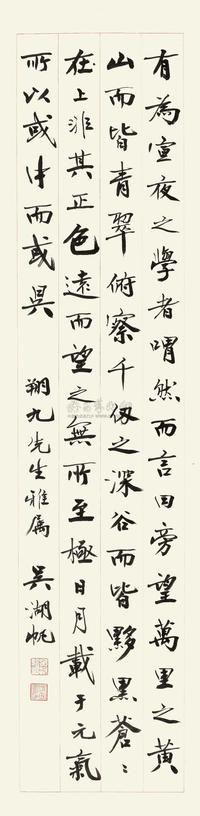 有為宣夜之學者喟然而言曰旁望萬里之黃
山而皆青翠俯察千仞之深谷而皆黟黑蒼〻
在上非其正色遠而望之無所至極日月載于元氣
所以或中而或昃
翔九先生雅屬 吳湖帆